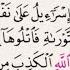 سْرَٰٓءِيلُ عَلَىٰ نَفْ
تَّوْرَىٰةِ فَٱتْلُوهَآ
ٱللَّهِ ٱلْكَذِبَ مِنۢ